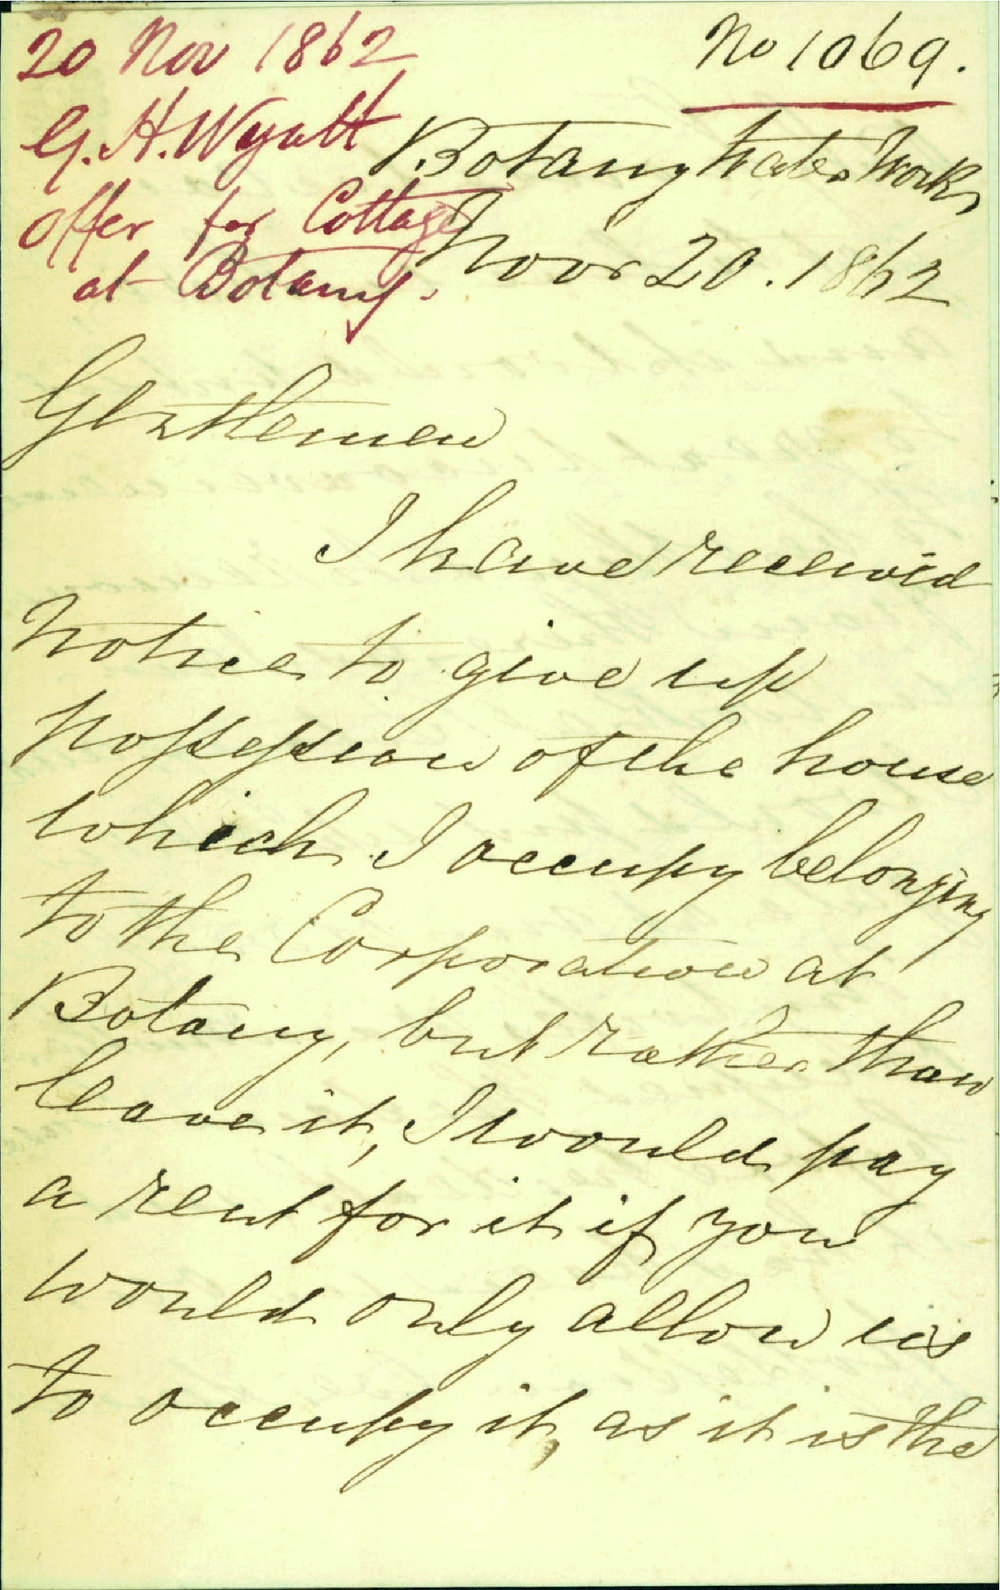 20 Nov 1862
G. H. Wyatt
offer for Cottage
at Botany.
No 1069.
Botany Water Works
Novr 20. 1862
Gentlemen
I have received
notice to give up
possession of the house
which I occupy belonging
to the Corporation at
Botany, but rather than
leave it, I would pay
a rent for it if you
would only allow us
to occupy it, as it is the